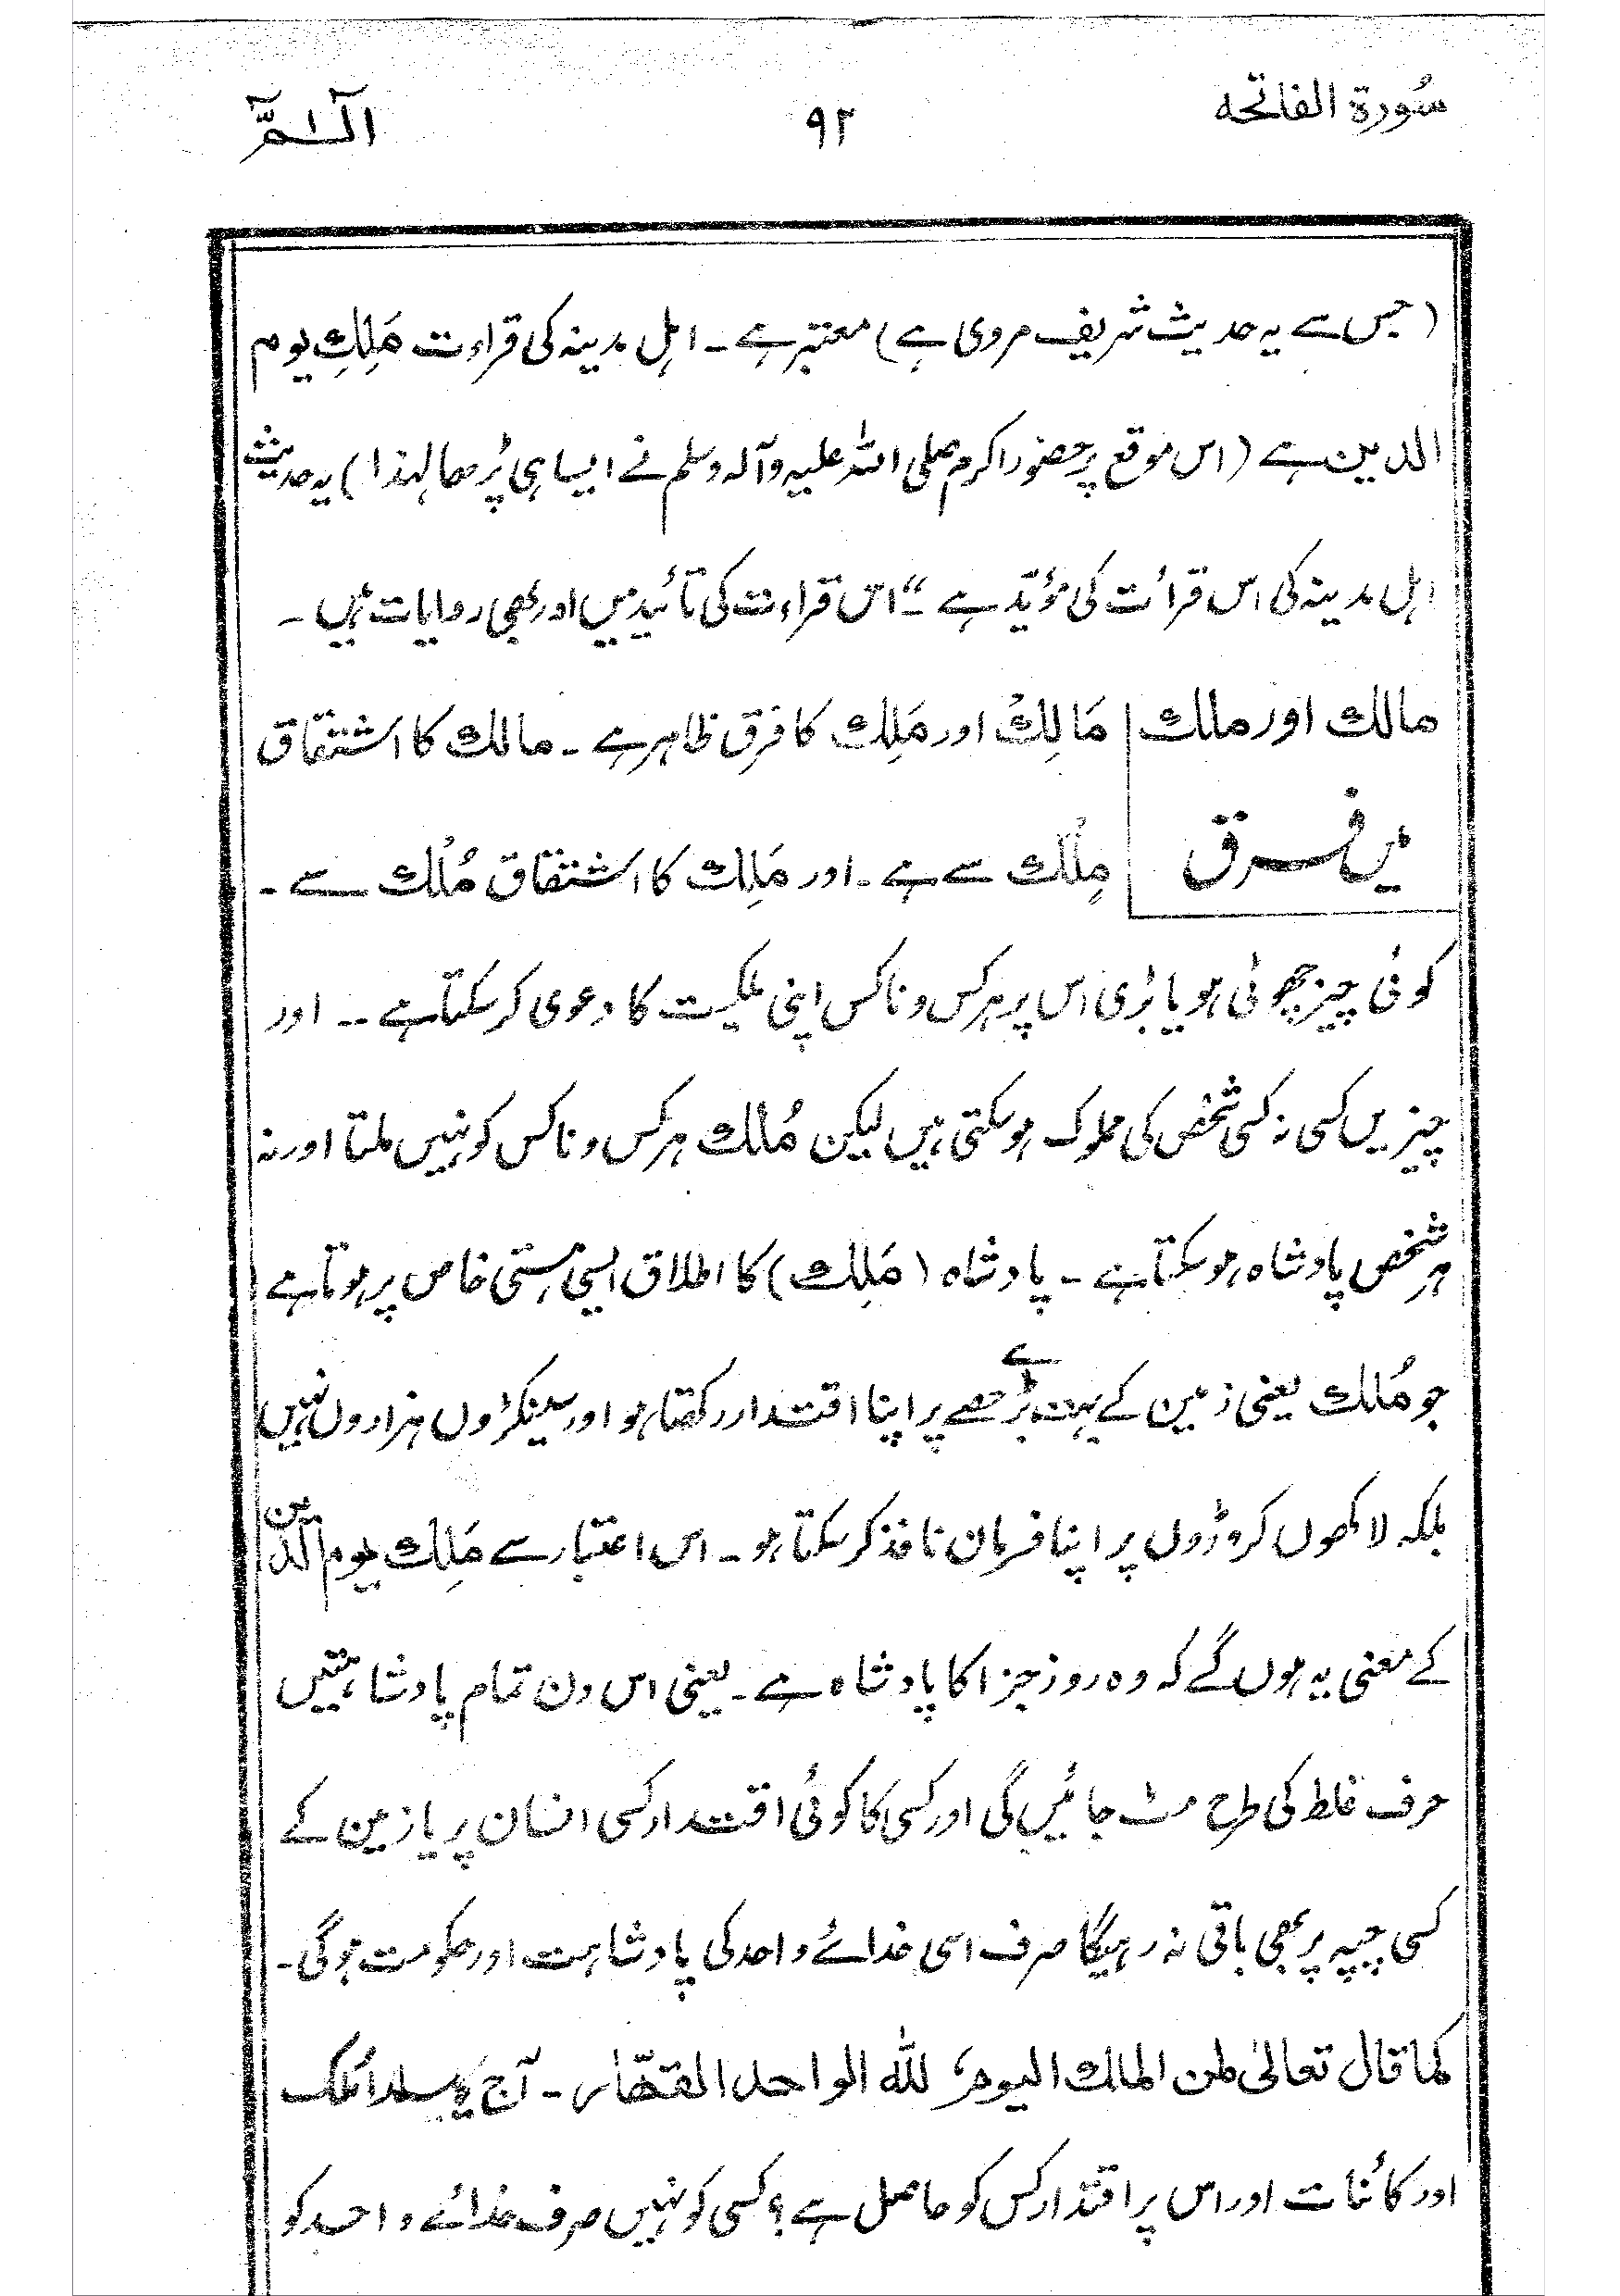 سُورة الفاتحہ
۹۲
الٓـمّٓ
(جس سے یہ حدیث شریف مروی ہے) معتبر ہے ۔ اہل مدینہ کی قراءت مَلِكِ یوم
الدین ہے (اس موقع پر حضور اکرم صلی اللہ علیہ وآلہ وسلم نے ایسا ہی پڑھا لہذا) یہ حدیث
اہل مدینہ کی اس قرأت کی مؤیّد ہے ۔“ اس قراءت کی تائید میں اور بھی روایات ہیں ۔
مالك اور ملك
میں فرق
مَالِكْ اور مَلِك کا فرق ظاہر ہے ۔ مالك کا اشتقاق
مِلْك سے ہے ۔ اور مَلِك کا اشتقاق مُلْك سے ۔
کوئی چیز چھوٹی ہو یا بڑی اس پر ہر کس و ناکس اپنی ملکیت کا دعوی کر سکتا ہے ۔۔ اور
چیزیں کسی نہ کسی شخص کی مملوک ہو سکتی ہیں لیکن مُلك ہر کس و ناکس کو نہیں ملتا اور نہ
ہر شخص پادشاہ ہو سکتا ہے ۔ پادشاہ (مَلِك) کا اطلاق ایسی ہستی خاص پر ہوتا ہے
جو مُلك یعنی زمین کے بہت بڑے حصے پر اپنا اقتدار رکھتا ہو اور سینکڑوں ہزاروں نہیں
بلکہ لاکھوں کروڑوں پر اپنا فرمان نافذ کر سکتا ہو ۔ اس اعتبار سے مَلِك یوم الدین
کے معنی یہ ہوں گے کہ وہ روز جزا کا پادشاہ ہے ۔ یعنی اس دن تمام پادشاہتیں
حرف غلط کی طرح مٹ جائیں گی اور کسی کا کوئی اقتدار کسی انسان پر یا زمین کے
کسی چپہ پر بھی باقی نہ رہیگا صرف اسی خدائے واحد کی پادشاہت اور حکومت ہوگی ۔
کما قال تعالیٰ لمن الملك الیوم، للّٰہ الواحد القھّار ۔ آج یہ سارا مُلک
اور کائنات اور اس پر اقتدار کس کو حاصل ہے ؟ کسی کو نہیں صرف خدائے واحد کو